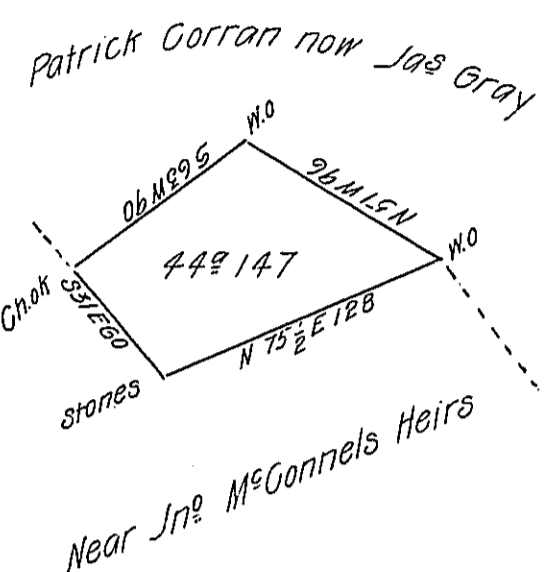 Patrick Corran now Jaˢ Gray
W.O
S 63 W 90
N 51 W 96
W.O
44ª 147
Ch.ok
S 31 E 60
N 75 ½ E 128
stones
Near Jnº MᶜConnels Heirs